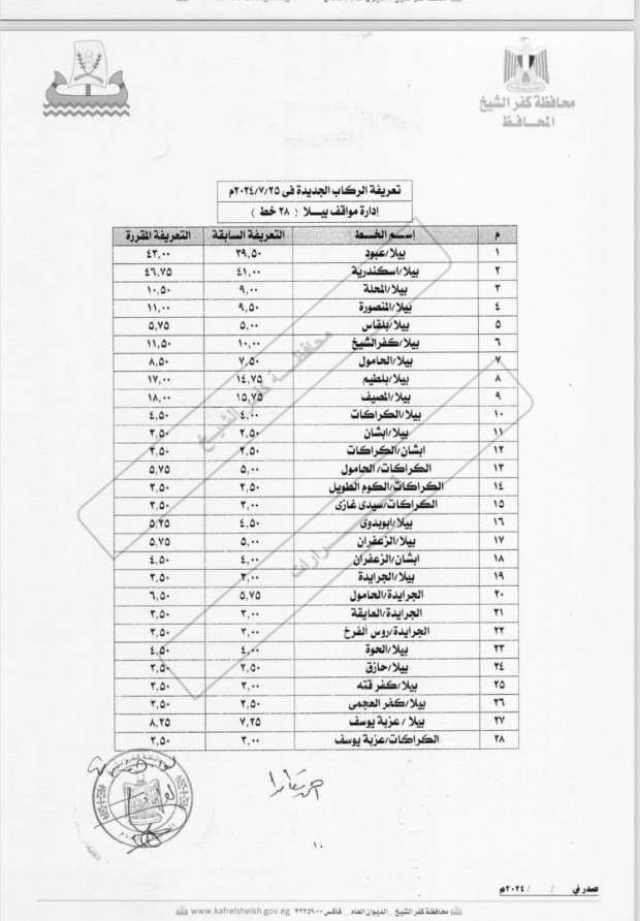 محافظة كفر الشيخ
المحافظ
تعريفة الركاب الجديدة فى ٢٠٢٤/٧/٢٥م
إدارة مواقف بيلا ( ٢٨ خط )
م إسم الخط التعريفة السابقة التعريفة المقررة
١ بيلا/عبود ٣٩,٥٠ ٤٣,٠٠
٢ بيلا/اسكندرية ٤١,٠٠ ٤٦,٧٥
٣ بيلا/المحلة ٩,٠٠ ١٠,٥٠
٤ بيلا/المنصورة ٩,٥٠ ١١,٠٠
٥ بيلا/بلقاس ٥,٠٠ ٥,٧٥
٦ بيلا/كفرالشيخ ١٠,٠٠ ١١,٥٠
٧ بيلا/الحامول ٧,٥٠ ٨,٥٠
٨ بيلا/بلطيم ١٤,٧٥ ١٧,٠٠
٩ بيلا/المصيف ١٥,٧٥ ١٨,٠٠
١٠ بيلا/الكراكات ٤,٠٠ ٤,٥٠
١١ بيلا/ابشان ٢,٥٠
١٢ ابشان/الكراكات ٢,٥٠
١٣ الكراكات/الحامول ٥,٠٠ ٥,٧٥
١٤ الكراكات/الكوم الطويل ٢,٥٠
١٥ الكراكات/سيدى غازى ٣,٠٠ ٣,٥٠
١٦ بيلا/ابوبدوى ٤,٥٠ ٥,٢٥
١٧ بيلا/الزعفران ٥,٠٠ ٥,٧٥
١٨ ابشان/الزعفران ٤,٠٠ ٤,٥٠
١٩ بيلا/الجرايدة ٣,٠٠ ٣,٥٠
٢٠ الجرايدة/الحامول ٥,٧٥ ٦,٥٠
٢١ الجرايدة/العايقة ٣,٠٠ ٣,٥٠
٢٢ الجرايدة/روس الفرخ ٣,٠٠ ٣,٥٠
٢٣ بيلا/الحوة ٤,٠٠ ٤,٥٠
٢٤ بيلا/حازق
٢٥ بيلا/كفر قته ٣,٠٠ ٣,٥٠
٢٦ بيلا/كفر العجمى
٢٧ بيلا / عزبة يوسف ٧,٢٥ ٨,٢٥
٢٨ الكراكات/عزبة يوسف ٣,٠٠ ٣,٥٠
محافظة كفر الشيخ
١٠
صدر في / / ٢٠٢٤م
محافظة كفر الشيخ .. الديوان العام .. فاكس www.kafrelsheikh.gov.eg